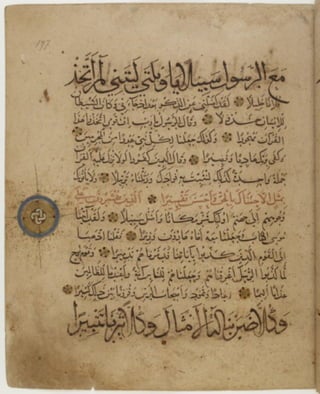 مع الرسول سبيلا يا ويلتى ليتني لم أتخذ
فلانا خليلا لقد أضلني عن الذكر بعد إذ جاءني وكان الشيطان
للإنسان خذولا وقال الرسول يا رب إن قومي اتخذوا هذا
القرآن مهجورا وكذلك جعلنا لكل نبي عدوا من المجرمين
وكفى بربك هاديا ونصيرا وقال الذين كفروا لولا نزل عليه القرآن
جملة واحدة كذلك لنثبت به فؤادك ورتلناه ترتيلا ولا يأتونك
بمثل إلا جئناك بالحق وأحسن تفسيرا الذين يحشرون على
وجوههم إلى جهنم أولئك شر مكانا وأضل سبيلا ولقد آتينا
موسى الكتاب وجعلنا معه أخاه هارون وزيرا فقلنا اذهبا
إلى القوم الذين كذبوا بآياتنا فدمرناهم تدميرا وقوم نوح
لما كذبوا الرسل أغرقناهم وجعلناهم للناس آية وأعتدنا للظالمين
عذابا أليما وعادا وثمود وأصحاب الرس وقرونا بين ذلك كثيرا
وكلا ضربنا له الأمثال وكلا تبرنا تتبيرا